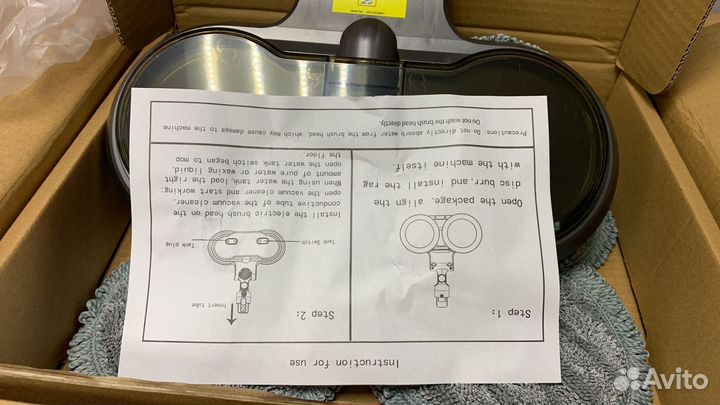 Instruction for use
Step 1:
Open the package, align the
disc burr, and install the rag
with the machine itself.
Step 2:
Insert tube
Tank Switch
Tank plug
Install the electric brush head on the
conductive tube of the vacuum cleaner.
open the vacuum cleaner and start working;
When using the water tank, load the right
amount of pure water or waxing liquid.
open the water tank switch began to mop
the floor.
Precautions: Do not directly absorb water from the brush head, which may cause damage to the machine
Do not wash the brush head directly.
Avito